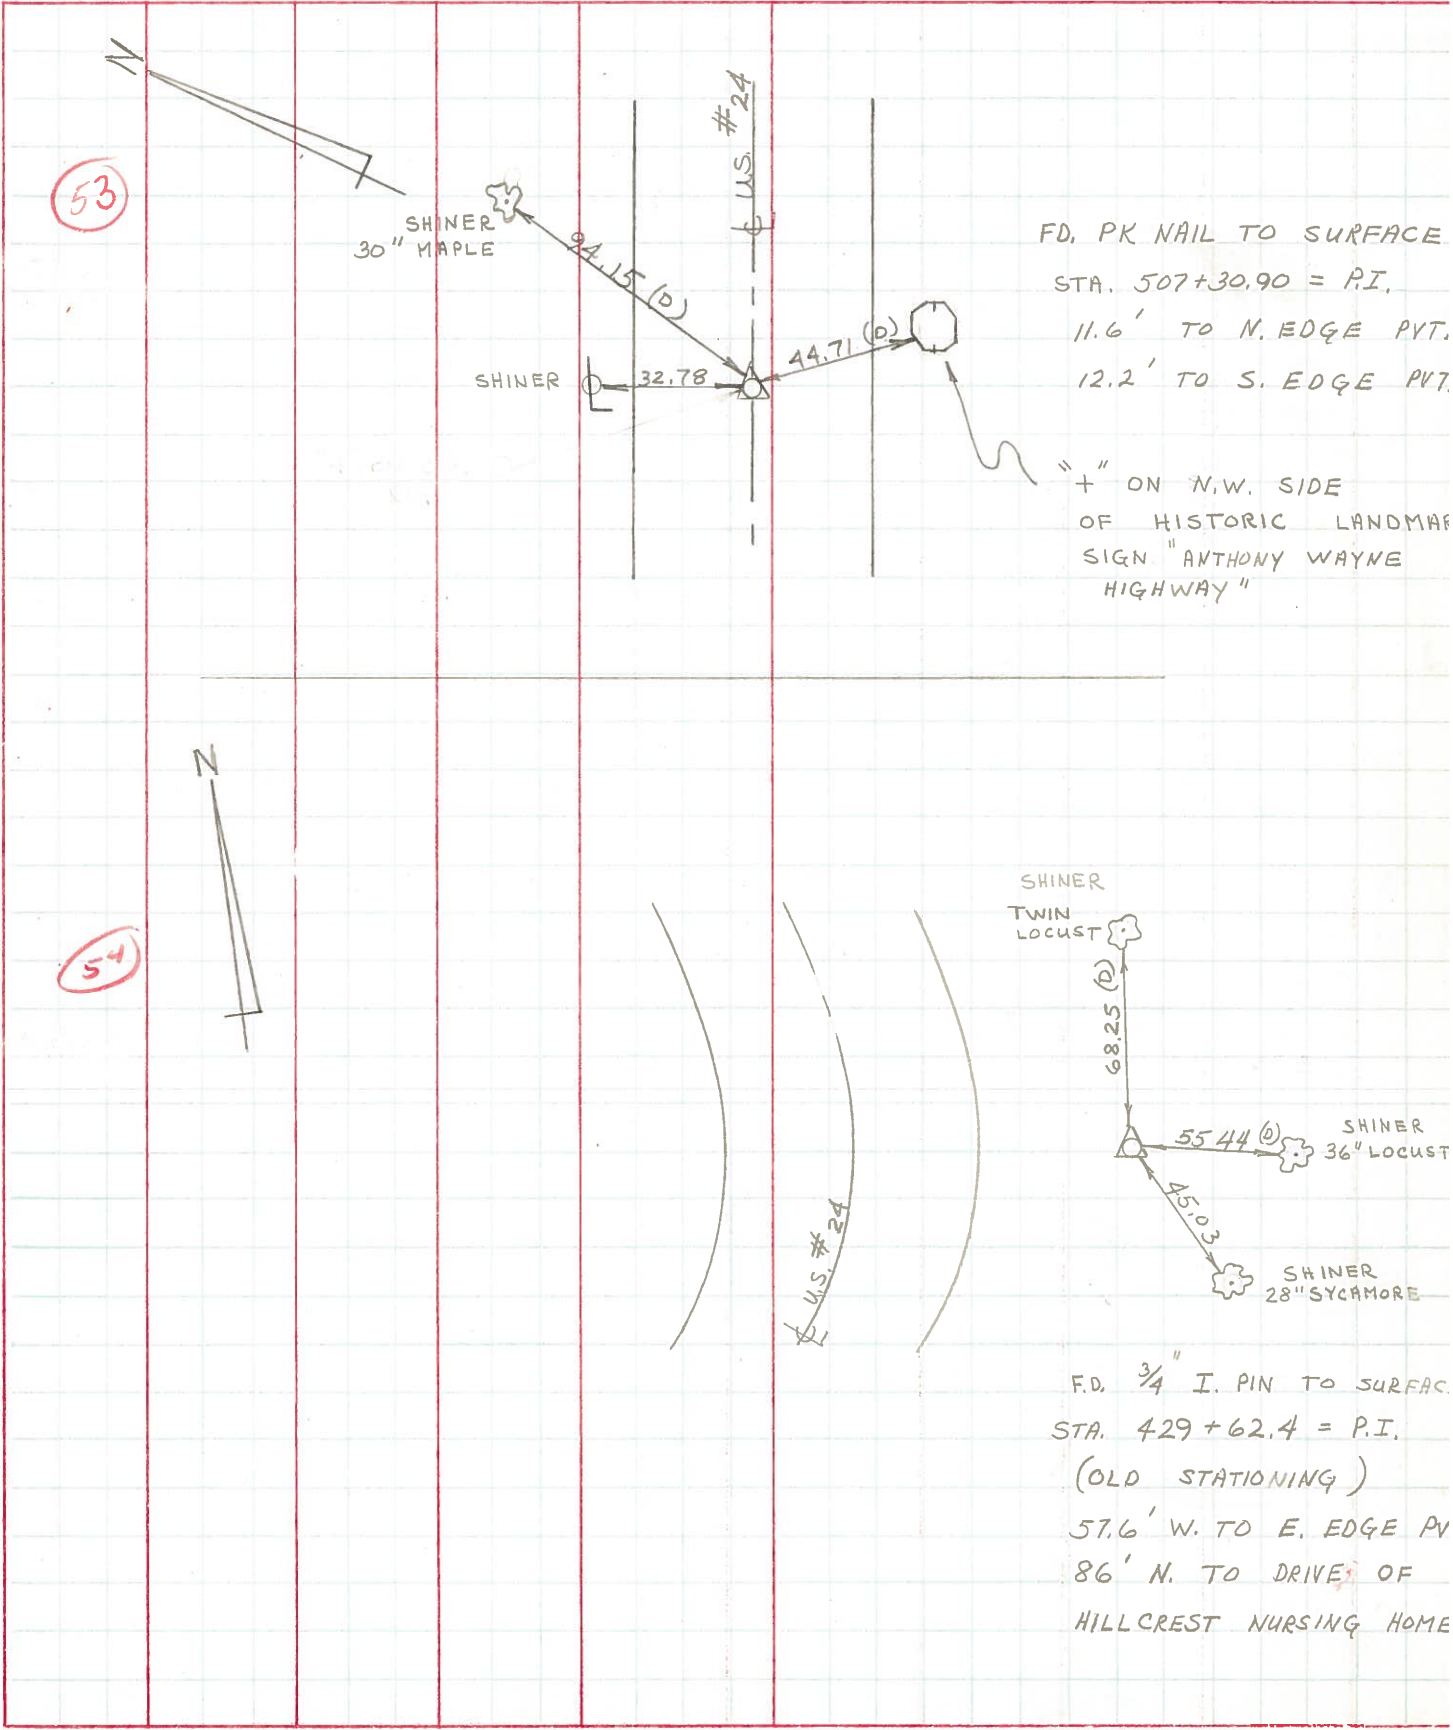 N
53
SHINER
30" MAPLE
94.15 (D)
℄ U.S. #24
SHINER
32.78
44.71 (D)
FD. PK NAIL TO SURFACE
STA. 507+30.90 = P.I.
11.6' TO N. EDGE PVT.
12.2' TO S. EDGE PVT.
"+" ON N.W. SIDE
OF HISTORIC LANDMAR
SIGN "ANTHONY WAYNE
HIGHWAY"
N
54
SHINER
TWIN
LOCUST
68.25 (D)
55.44 (D)
SHINER
36" LOCUST
45.03
SHINER
28" SYCAMORE
℄ U.S. #24
F.D. 3/4" I. PIN TO SURFAC
STA. 429+62.4 = P.I.
(OLD STATIONING)
57.6' W. TO E. EDGE PV
86' N. TO DRIVE OF
HILLCREST NURSING HOME